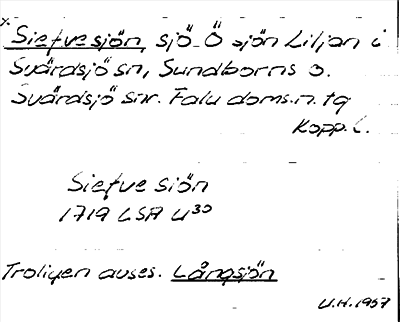 x.
Siefvesjön, sjö Ö sjön Liljan i
Svärdsjö sn, Sundborns o.
Svärdsjö snr. Falu doms.n. tg
Kopp. l.
Siefve siön
1719 LSA U30
Troligen avses. Långsjön
U.H. 1957